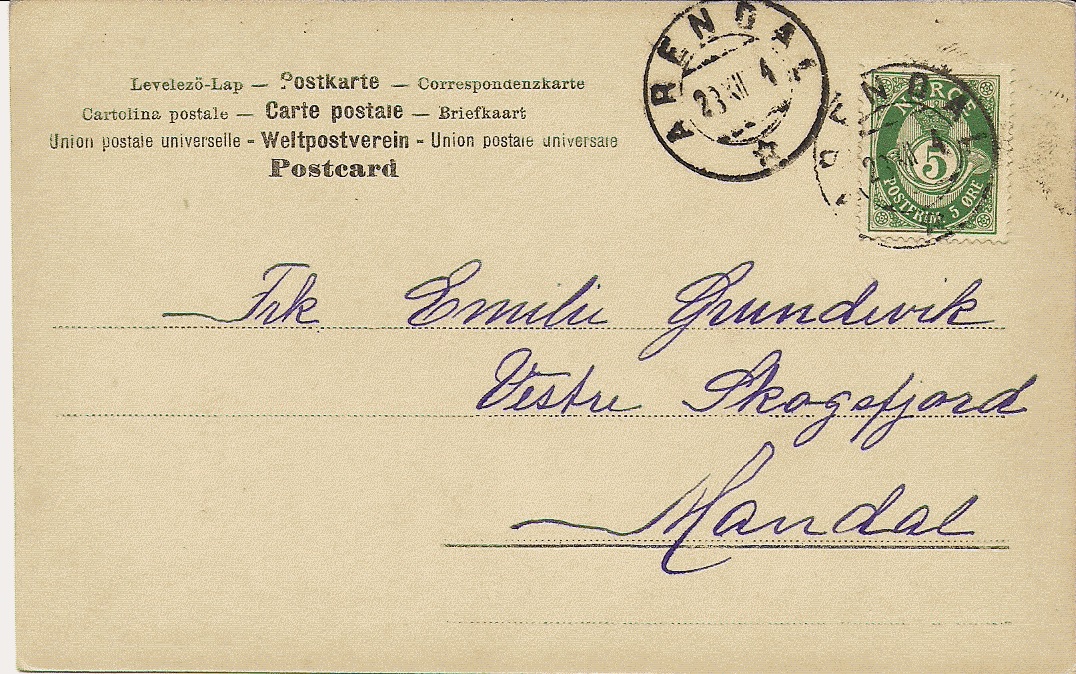 Levelező-Lap — Postkarte — Correspondenzkarte
Cartolina postale — Carte postale — Briefkaart
Union postale universelle - Weltpostverein - Union postale universale
Postcard
ARENDAL
23 XII 1
ARENDAL
NORGE
5
POSTFRIM 5 ØRE
Frk Emilie Grundevik
Vestre Skogsfjord
Mandal